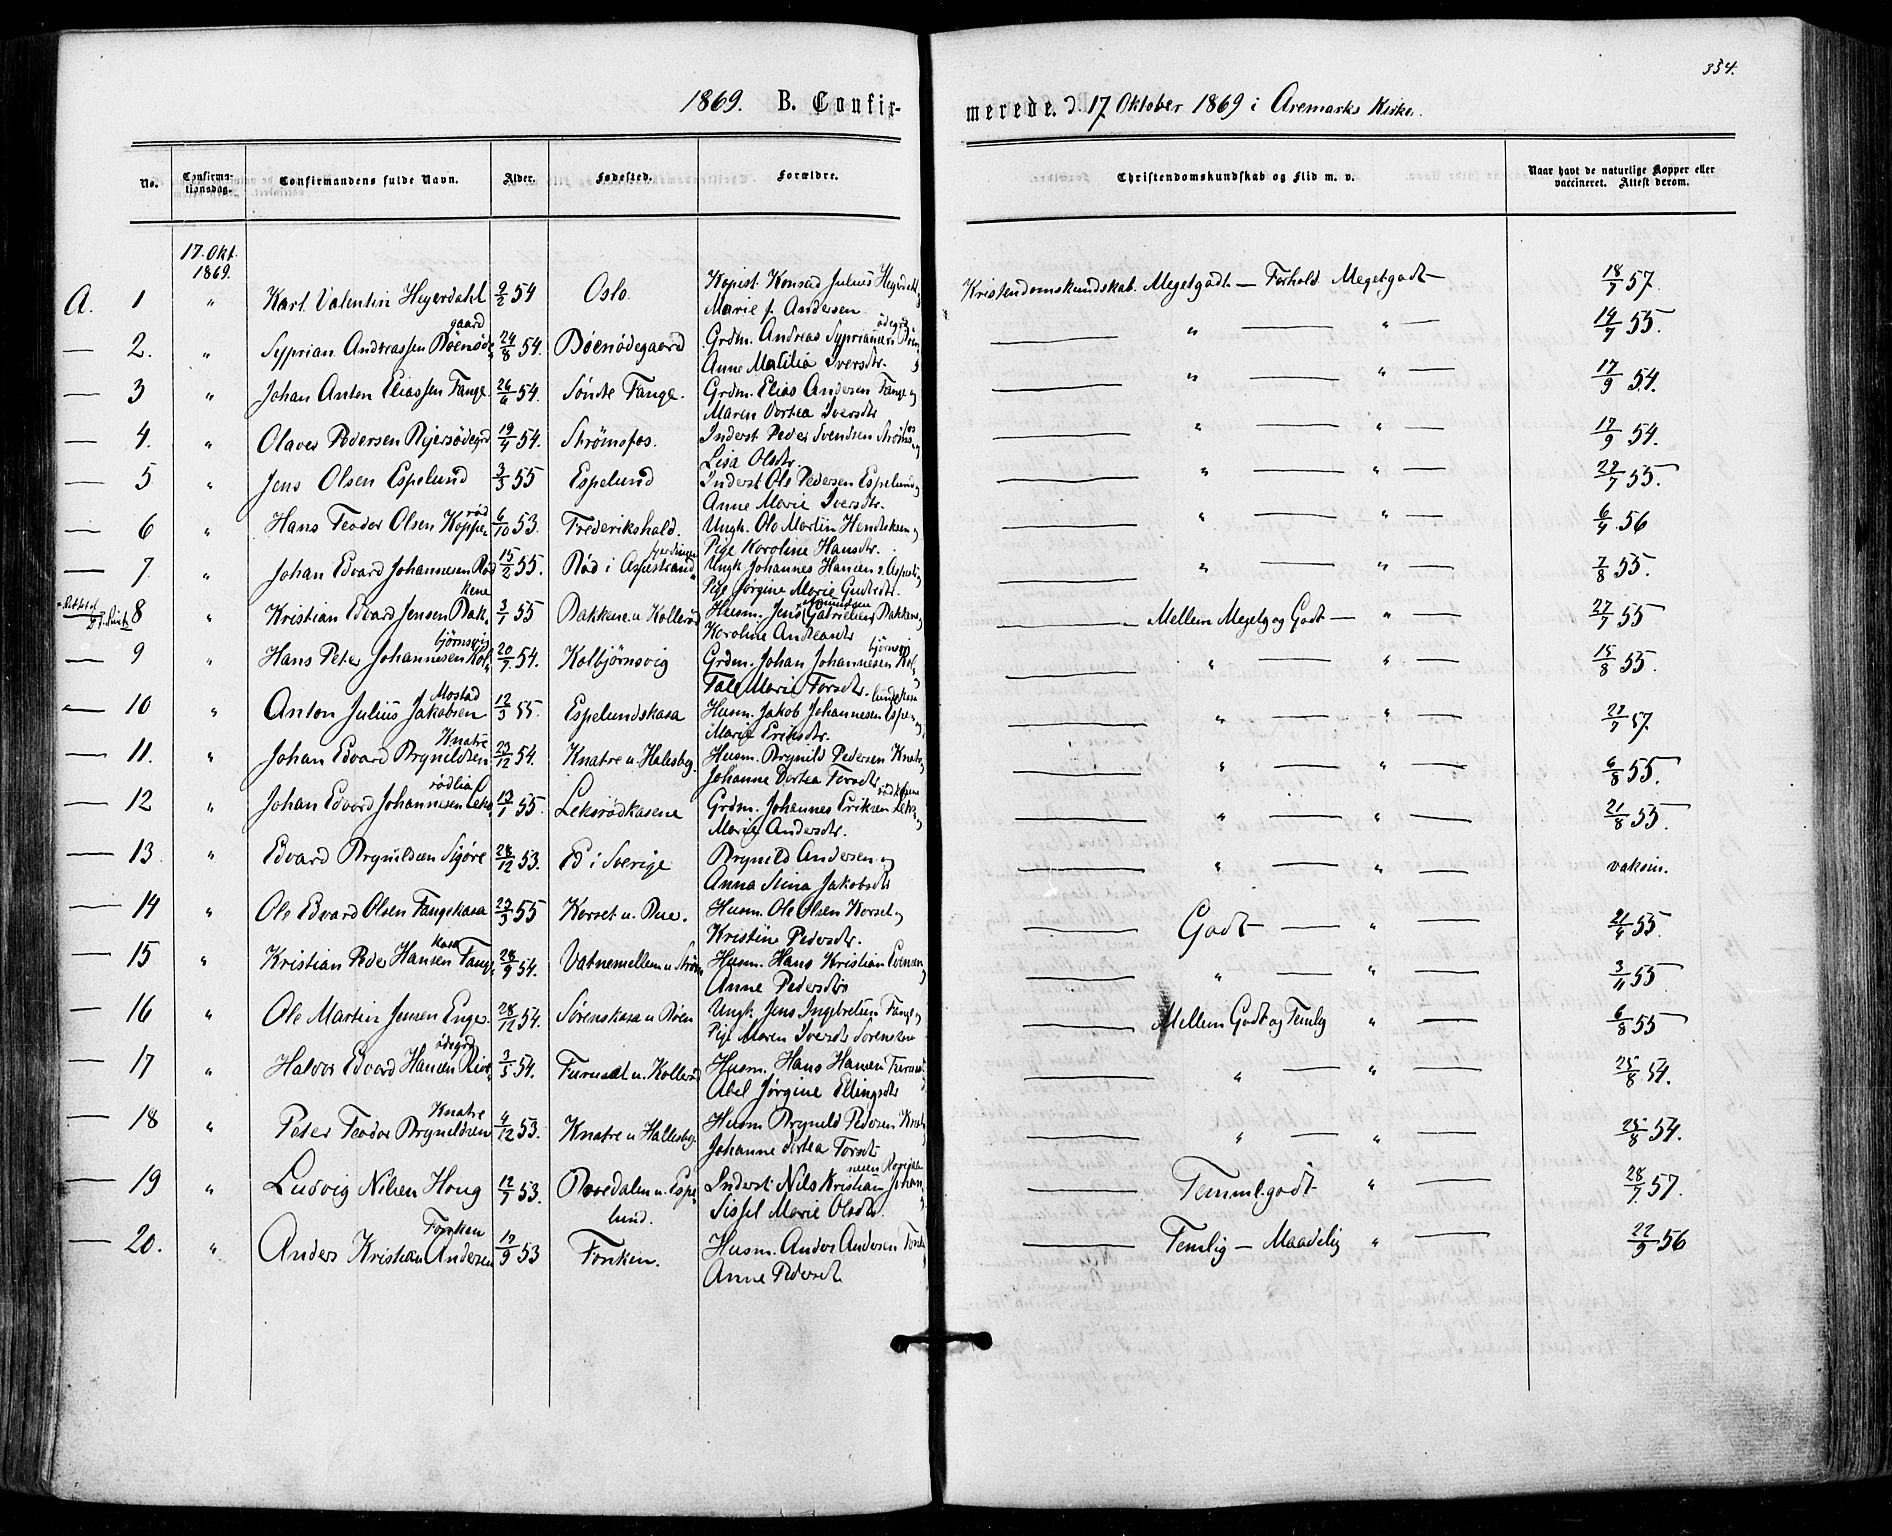 354.
1869. B. Confir- merede. d. 17 Oktober 1869 i Aremarks Kirke.
No. Confirma-tionsdag. Confirmandens fulde Navn. Alder. Fødested. Forældre. Christendomskundskab og Flid m. v. Naar havt de naturlige Kopper eller vaccineret. Attest derom.
17. Okt. 1869.
A. 1 " Karl Valentin Heyerdahl 9/2 54 Oslo. Kopist Konrad Julius Heyerdahl Kristendomskundskab. Megetgodt. — Forhold Megetgodt — 18/7 57.
Marie f. Andersen
gaard ødegrd.
— 2. " Syprian Andreassen Bøenøde 24/8 54. Bøenødegaard Grdm. Andreas Typriansen — " — " — 14/7 55.
Anne Matilia Iversdtr.
— 3 " Johan Anton Eliassen Fange 26/6 54. Søndre Fange. Grdm. Elias Andersen Fange og — " — " — 17/9 54.
Maren Dortea Iversdtr
— 4. " Olaves Pedersen 19/4 54. Strømsfos. Inderst Peder Svendsen Strøms — " — " — 17/9 54.
Lisa Olsdtr.
— 5 " Jens Olsen Espelund 3/3 55 Espelund Inderst Ole Pedersen Espelund og — " — " — 22/7 55.
Anne Marie Iversdtr.
rød
— 6 " Hans Teodor Olsen Koppe 6/10 53. Frederikshald. Ungk. Ole Martin Hendriksen og — " — " — 6/4 56
Pige Karoline Hansdtr.
— 7 " Johan Edvard Johannesen Rød 15/2 55. Rød i Aspestrand Ungk Johannes Hansen — " — " — 7/8 55.
Pige Jørgine Marie
kene
8 " Kristian Edvard Jensen Bak 3/1 55 Bakkene u. Kollerød Husm. Jens Bakkene — Mellem Megetg og Godt — " — 27/7 55
Karoline
bjørnsvig bjørnsvig
— 9 " Hans Peter Johannesen Kol 20/7 54. Kolbjørnsvig Grdm. Johan Johannesen Kol — " — " — 15/8 55.
Tale Marie Torsdtr.
Mostad lundskasa
— 10 " Anton Julius Jakobsen 12/3 55. Espelundskasa Husm. Jakob Johannesen Espe — " — " — 22/7 57.
Marie Eriksdtr.
Knatre
— 11. " Johan Edvard Brynildsen 23/12 54. Knatre u. Halesby. Husm. Brynild Pedersen — " — " — 6/8 55.
Johanne Dortea Torsdtr
rødlia
— 12 " Johan Edvard Johannesen Leks 13/1 55. Leksrødkasene Grdm. Johannes Eriksen Leks — " — " — 21/8 55.
Marie Andersdtr.
— 13 " Edvard Brynildsen 28/12 53. Ed i Sverige Brynild Andersen og — " — " — vaksin.
Anna Stina Jakobsdtr
— 14 " Ole Edvard Olsen Fangekasa 23/3 55 Korset u. Bue. Husm. Ole Olsen Korset og — Godt — " — 21/4 55.
Kristine Pedersdtr.
kasa
— 15 " Kristian Peder Hansen Fange 28/9 54. Vatnemellem u. Strøm Husm. Hans Kristian Evensen — " — " — 3/4 55
Anne Pedersdtr
— 16 " Ole Martin Jensen Enger 28/12 54. Sørenskasa u Bøen Ungk Jens Ingebretsen Fange og — Mellem Godt og Temlig " — 6/8 55
Pige Maren Iversdtr
ødegrd
— 17 " Halvor Edvard Hansen 3/5 54. Furuset u. Kollerød Husm. Hans Hansen Furuset — " — " — 25/8 54.
Abel Jørgine Ellingsdtr
Knatre
— 18 " Peter Teodor Brynildsen 4/12 53. Knatre u Hallesby. Husm Brynild Pedersen — " — " — 25/8 54.
Johanne Dortea Torsdtr
— 19 " Ludvig Nilsen Houg 12/7 53. u. Espe- Inderst Nils Kristian Johan — Temml. godt " — 28/7 57.
lund. Sissel Marie Olsdtr.
Fonken
— 20. " Anders Kristian Andersen 17/9 53 Fonken. Husm. Anders Andersen — Temlig — Maadelig " — 22/9 56
Anne Pedersdtr